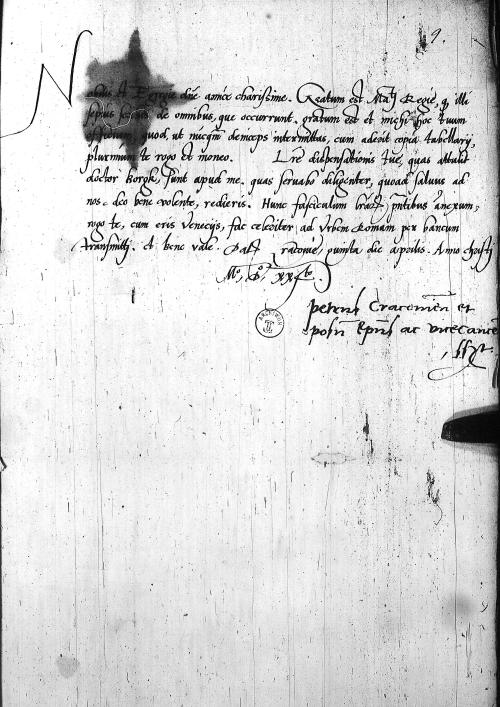 9.
Nobilis et Egregie dne amice charissime. Gratum est Mati Regie, q illi
sepius scribis de omnibus, que occurrunt. gratum est et michi hoc tuum
officium, quod, ut nusqm deinceps intermittas, cum aderit copia tabellarij,
plurimum te rogo et moneo. Lre dispensationis tue, quas attulit
doctor Borgk, sunt apud me. quas servabo diligenter, quoad salvus ad
nos, deo bene volente, redieris. Hunc fasciculum lrarz pntibus anexum,
rogo te, cum eris Venecijs, fac celeriter ad Urbem Romam per bancum
transmitti. et bene vale. Dat Cracovie, punita die aprilis. Anno christi
Mo, Do, xxqto
petrus Cracovien et
posn Epus ac vicecance
ssst